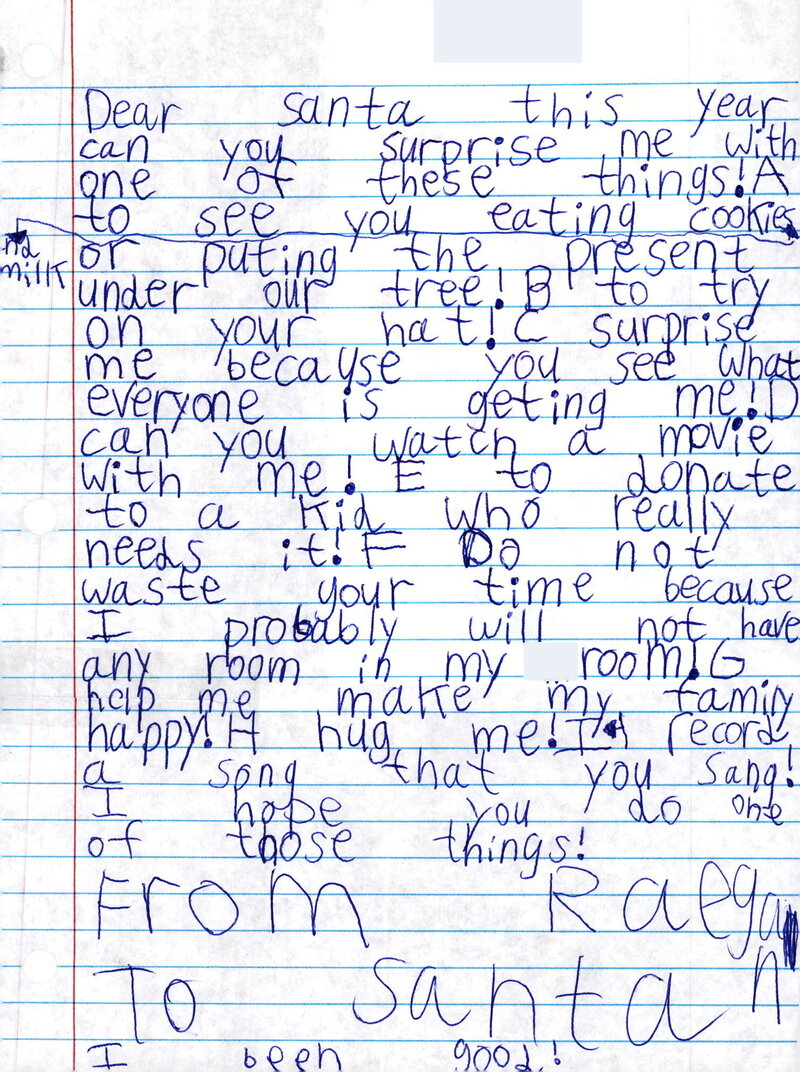 Dear santa this year
can you surprise me with
one of these things! A
to see you eating cookies
nd
milk
or puting the present
under our tree! B to try
on your hat! C surprise
me because you see what
everyone is geting me! D
can you watch a movie
with me! E to donate
to a kid who really
needs it! F Do not
waste your time because
I probably will not have
any room in my room! G
help me make my family
happy! H hug me! I record
a song that you sang!
I hope you do one
of those things!
From Raegan
To santa
I been good!